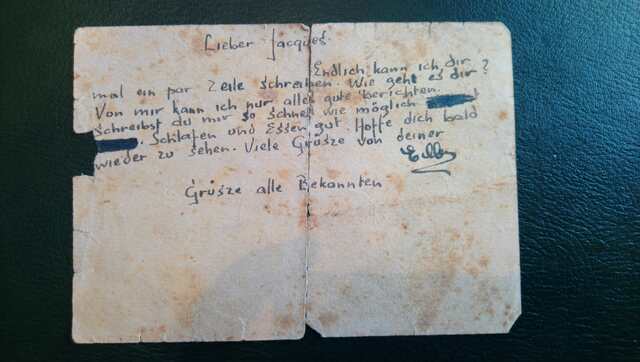 Lieber Jacques.
Endlich kann ich dir
mal ein par Zeile schreiben. Wie geht es dir?
Von mir kann ich nur alles gute berichten.
schreibst du mir so schnel wie möglich
. Schlafen und Essen gut. Hoffe dich bald
wieder zu sehen. Viele Grüsze von deiner
Grüsze alle Bekannten